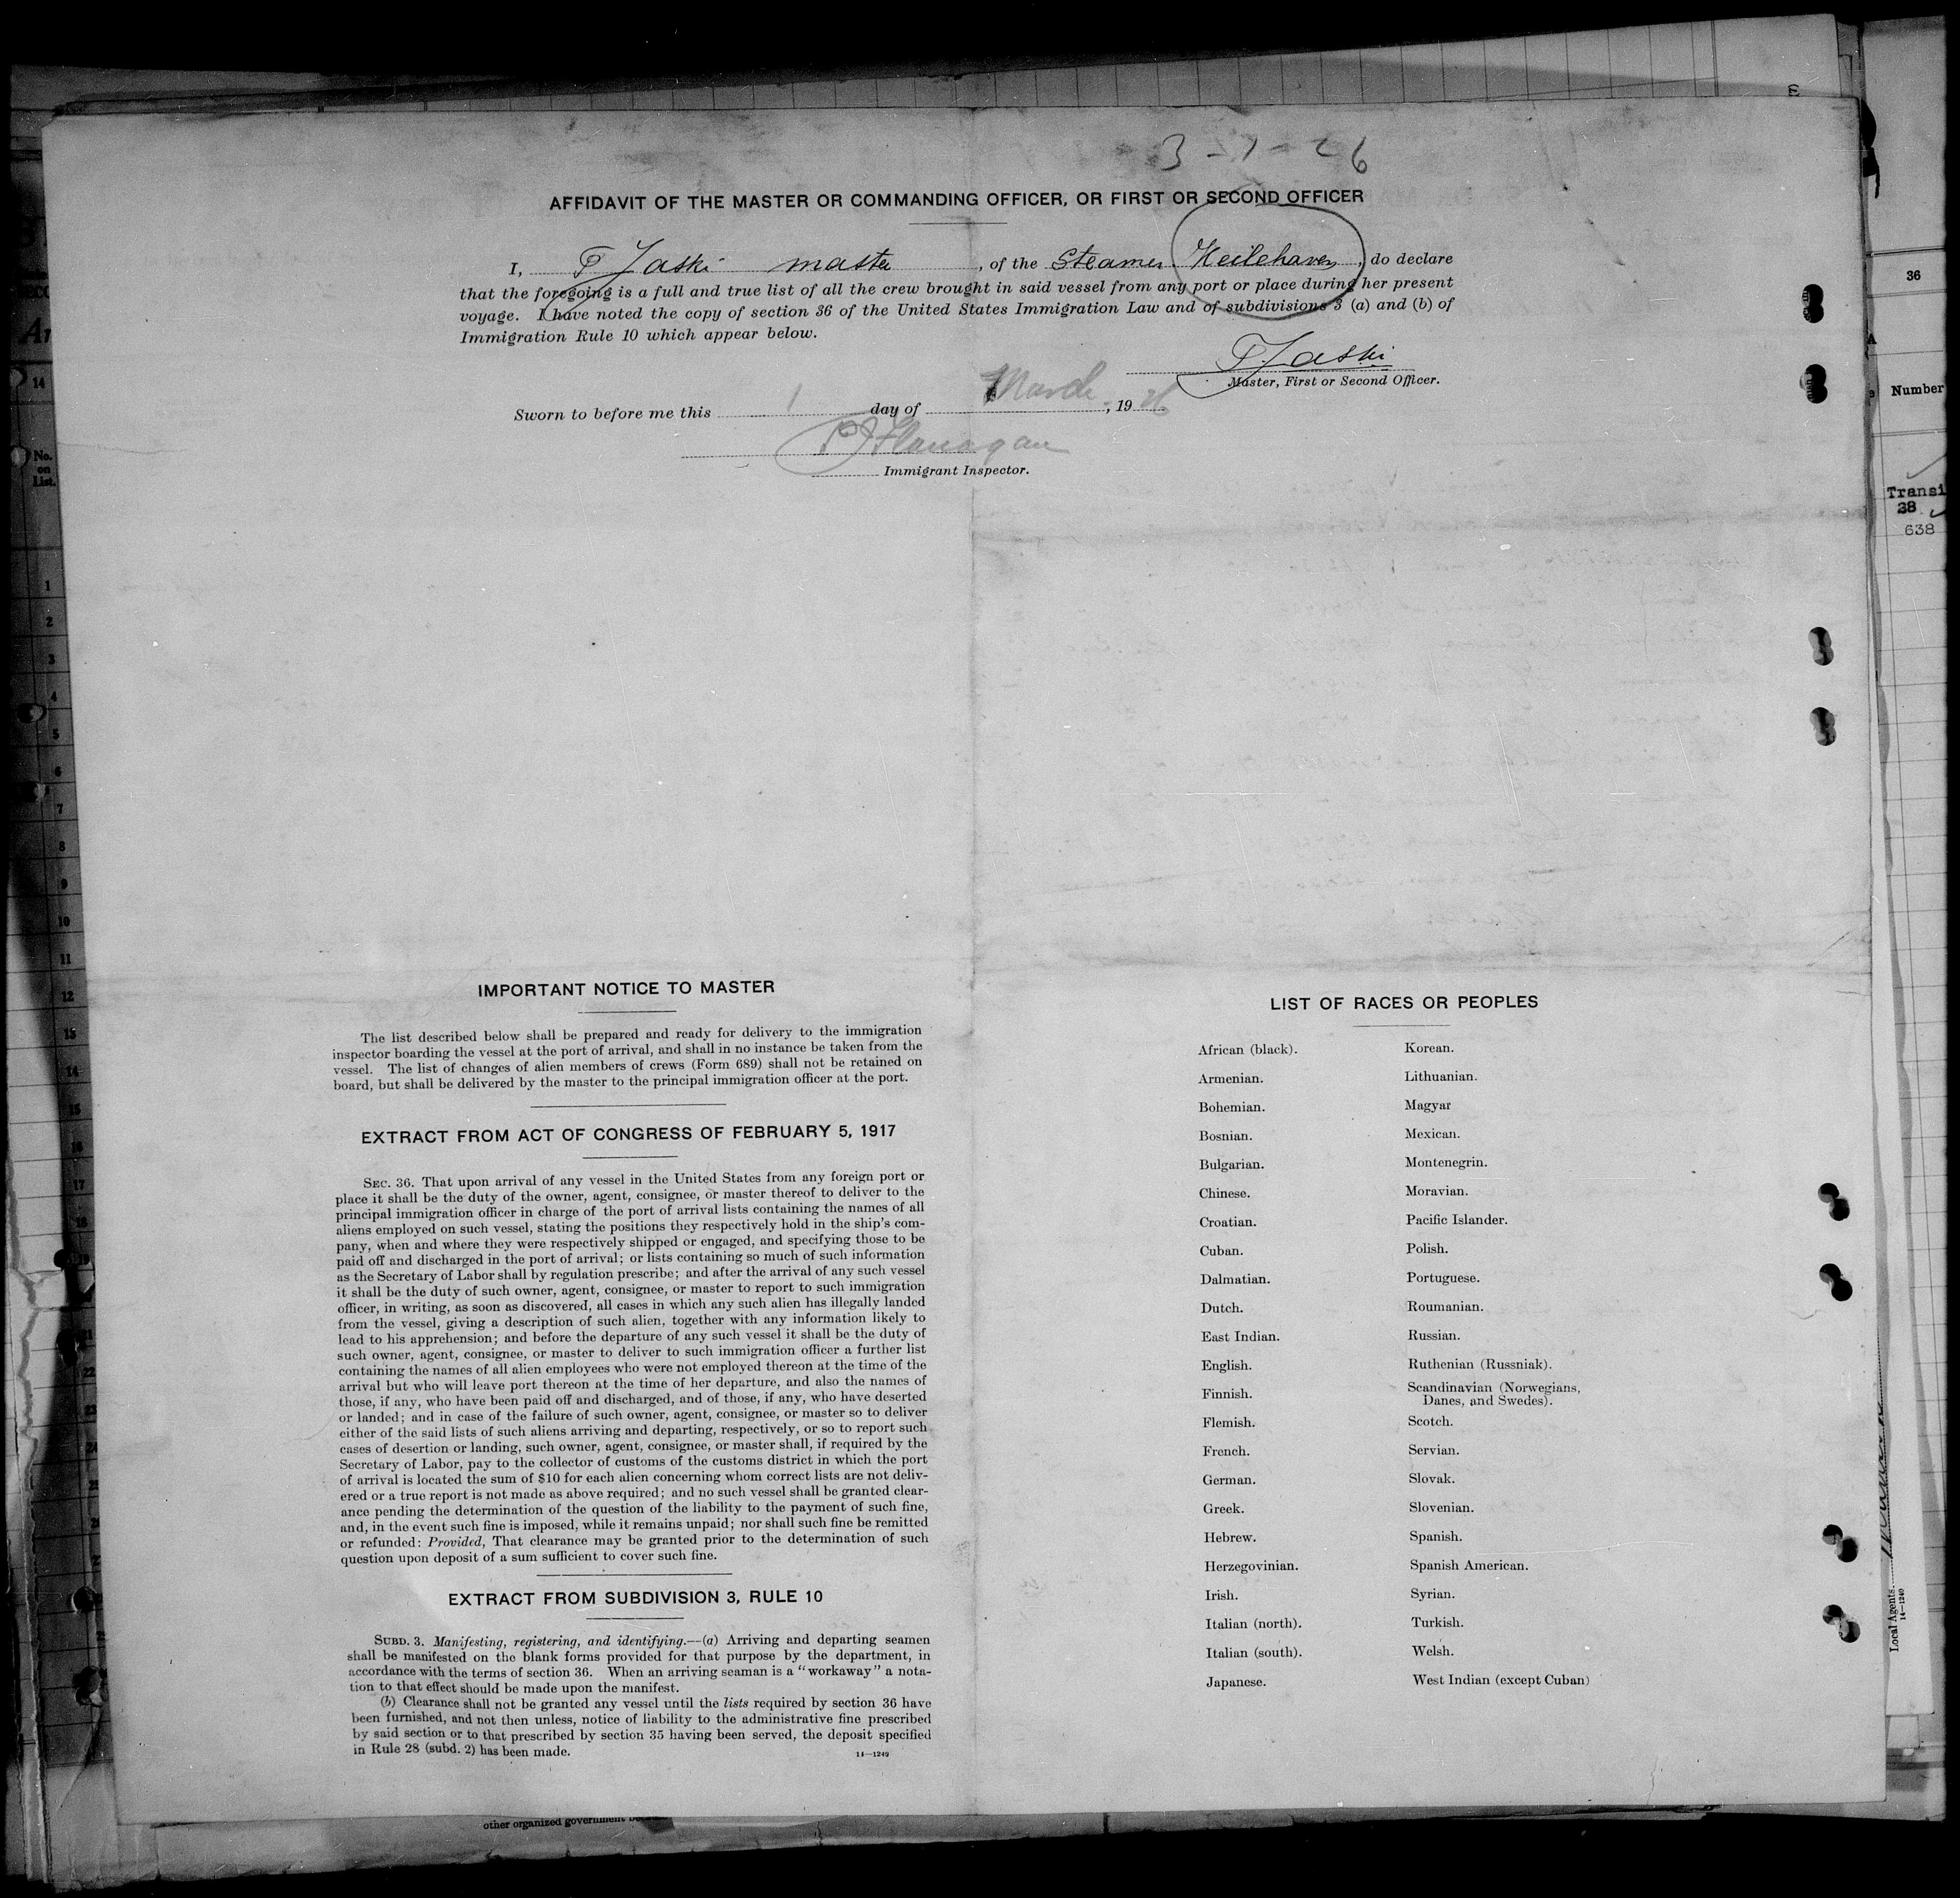 3-1-26
AFFIDAVIT OF THE MASTER OR COMMANDING OFFICER, OR FIRST OR SECOND OFFICER
I, T Jaski master, of the Steamer Heilehaven, do declare
that the foregoing is a full and true list of all the crew brought in said vessel from any port or place during her present
voyage. I have noted the copy of section 36 of the United States Immigration Law and of subdivisions 3 (a) and (b) of
Immigration Rule 10 which appear below.
T Jaski
Master, First or Second Officer.
Sworn to before me this 1 day of March, 1926
P J Flanagan
Immigrant Inspector.
IMPORTANT NOTICE TO MASTER
The list described below shall be prepared and ready for delivery to the immigration
inspector boarding the vessel at the port of arrival, and shall in no instance be taken from the
vessel. The list of changes of alien members of crews (Form 689) shall not be retained on
board, but shall be delivered by the master to the principal immigration officer at the port.
EXTRACT FROM ACT OF CONGRESS OF FEBRUARY 5, 1917
SEC. 36. That upon arrival of any vessel in the United States from any foreign port or
place it shall be the duty of the owner, agent, consignee, or master thereof to deliver to the
principal immigration officer in charge of the port of arrival lists containing the names of all
aliens employed on such vessel, stating the positions they respectively hold in the ship's com-
pany, when and where they were respectively shipped or engaged, and specifying those to be
paid off and discharged in the port of arrival; or lists containing so much of such information
as the Secretary of Labor shall by regulation prescribe; and after the arrival of any such vessel
it shall be the duty of such owner, agent, consignee, or master to report to such immigration
officer, in writing, as soon as discovered, all cases in which any such alien has illegally landed
from the vessel, giving a description of such alien, together with any information likely to
lead to his apprehension; and before the departure of any such vessel it shall be the duty of
such owner, agent, consignee, or master to deliver to such immigration officer a further list
containing the names of all alien employees who were not employed thereon at the time of the
arrival but who will leave port thereon at the time of her departure, and also the names of
those, if any, who have been paid off and discharged, and of those, if any, who have deserted
or landed; and in case of the failure of such owner, agent, consignee, or master so to deliver
either of the said lists of such aliens arriving and departing, respectively, or so to report such
cases of desertion or landing, such owner, agent, consignee, or master shall, if required by the
Secretary of Labor, pay to the collector of customs of the customs district in which the port
of arrival is located the sum of $10 for each alien concerning whom correct lists are not deliv-
ered or a true report is not made as above required; and no such vessel shall be granted clear-
ance pending the determination of the question of the liability to the payment of such fine,
and, in the event such fine is imposed, while it remains unpaid; nor shall such fine be remitted
or refunded: Provided, That clearance may be granted prior to the determination of such
question upon deposit of a sum sufficient to cover such fine.
EXTRACT FROM SUBDIVISION 3, RULE 10
SUBD. 3. Manifesting, registering, and identifying.—(a) Arriving and departing seamen
shall be manifested on the blank forms provided for that purpose by the department, in
accordance with the terms of section 36. When an arriving seaman is a "workaway" a nota-
tion to that effect should be made upon the manifest.
(b) Clearance shall not be granted any vessel until the lists required by section 36 have
been furnished, and not then unless, notice of liability to the administrative fine prescribed
by said section or to that prescribed by section 35 having been served, the deposit specified
in Rule 28 (subd. 2) has been made.
14—1249
LIST OF RACES OR PEOPLES
African (black).
Armenian.
Bohemian.
Bosnian.
Bulgarian.
Chinese.
Croatian.
Cuban.
Dalmatian.
Dutch.
East Indian.
English.
Finnish.
Flemish.
French.
German.
Greek.
Hebrew.
Herzegovinian.
Irish.
Italian (north).
Italian (south).
Japanese.
Korean.
Lithuanian.
Magyar
Mexican.
Montenegrin.
Moravian.
Pacific Islander.
Polish.
Portuguese.
Roumanian.
Russian.
Ruthenian (Russniak).
Scandinavian (Norwegians,
Danes, and Swedes).
Scotch.
Servian.
Slovak.
Slovenian.
Spanish.
Spanish American.
Syrian.
Turkish.
Welsh.
West Indian (except Cuban)
36
Number
Transi
38
638
Local Agents
14—1240
No.
on
List.
other organized government